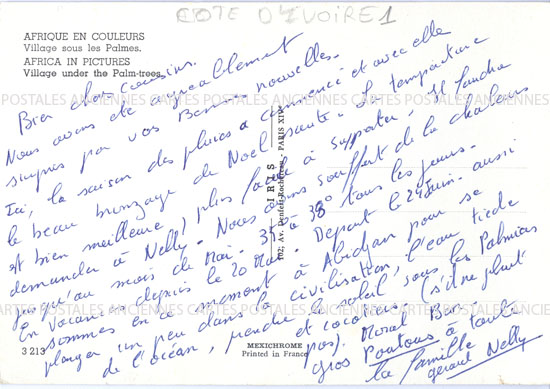 COTE D'IVOIRE 1
AFRIQUE EN COULEURS
Village sous les Palmes.
AFRICA IN PICTURES
Village under the Palm-trees.
Bien chers cousins.
Nous avons été agréablement
surpris par vos Bonnes nouvelles.
Ici, la saison des pluies a commencé et avec elle
le beau bronzage de Noël saute. La température
est bien meilleure, plus facile à supporter. Il faudra
demander à Nelly. Nous avons souffert de la chaleur
jusqu'au mois de Mai. 35 à 38° tous les jours.
En vacances depuis le 20 Mai. Départ le 24 Juin. aussi
sommes en ce moment à Abidjan pour se
plonger un peu dans la civilisation, l'eau tiède
de l'océan, prendre le soleil, sous les Palmiers
et cocotiers (s'il ne pleut
pas). Moral Bon.
gros Poutous à toute
la famille
Gérard Nelly
CARTES POSTALES ANCIENNES CARTES POSTALES ANCIENNES CARTES
IRIS
102, Av. Denfert-Rochereau, PARIS XIVe
3 213
MEXICHROME
Printed in France